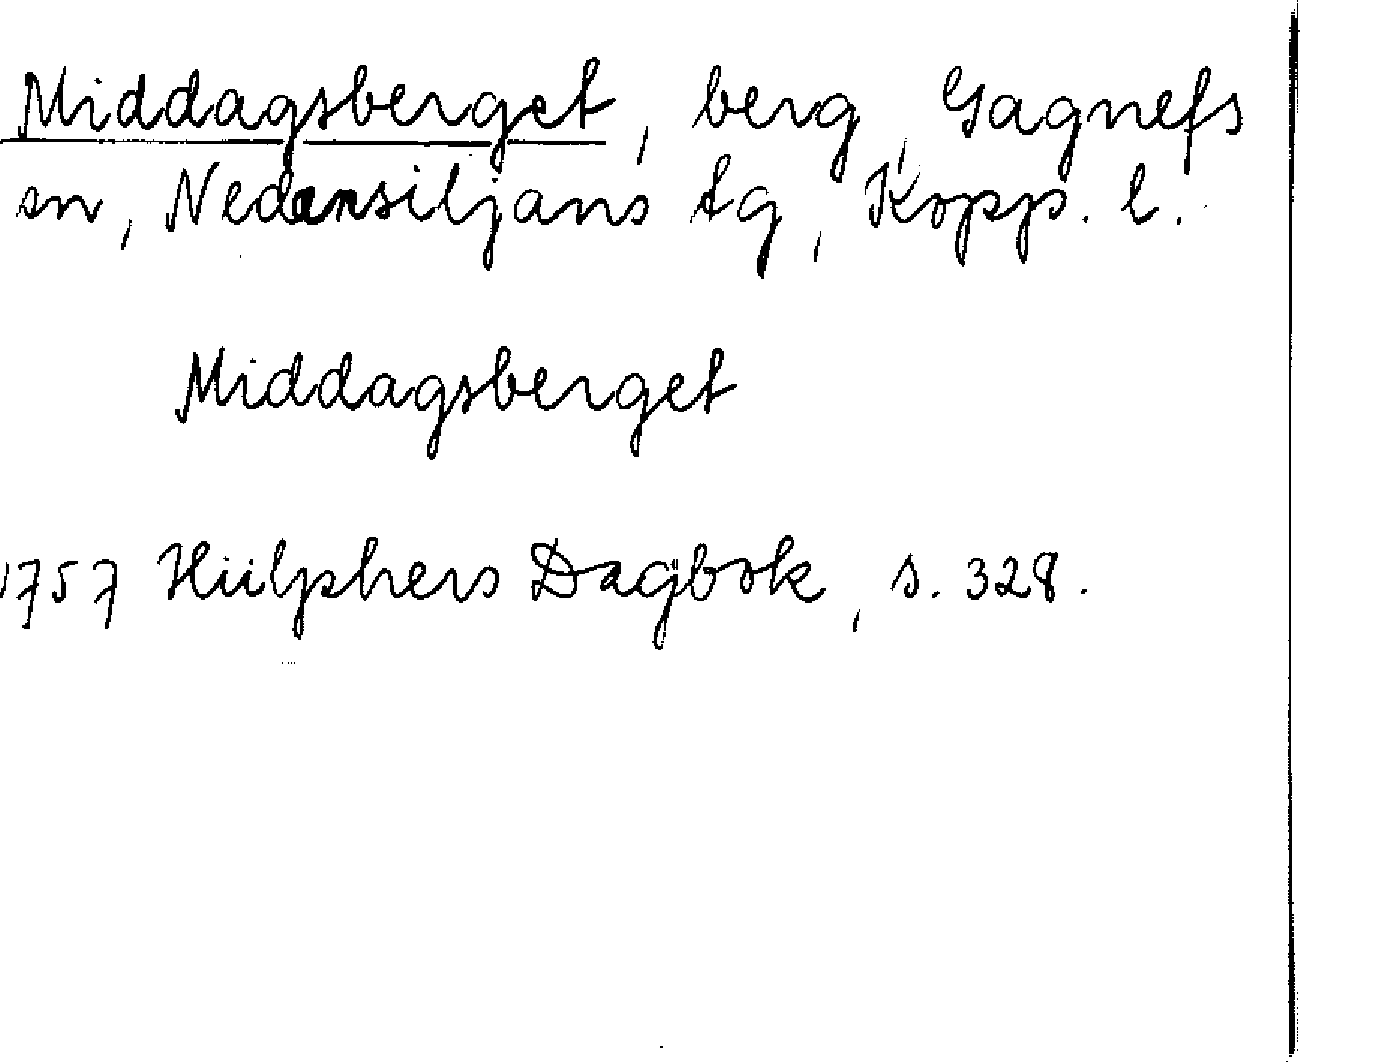 Middagsberget, berg, Gagnefs
sn, Nedansiljans tg, Kopp. l.
Middagsberget
1757 Hülphers Dagbok, s. 328.